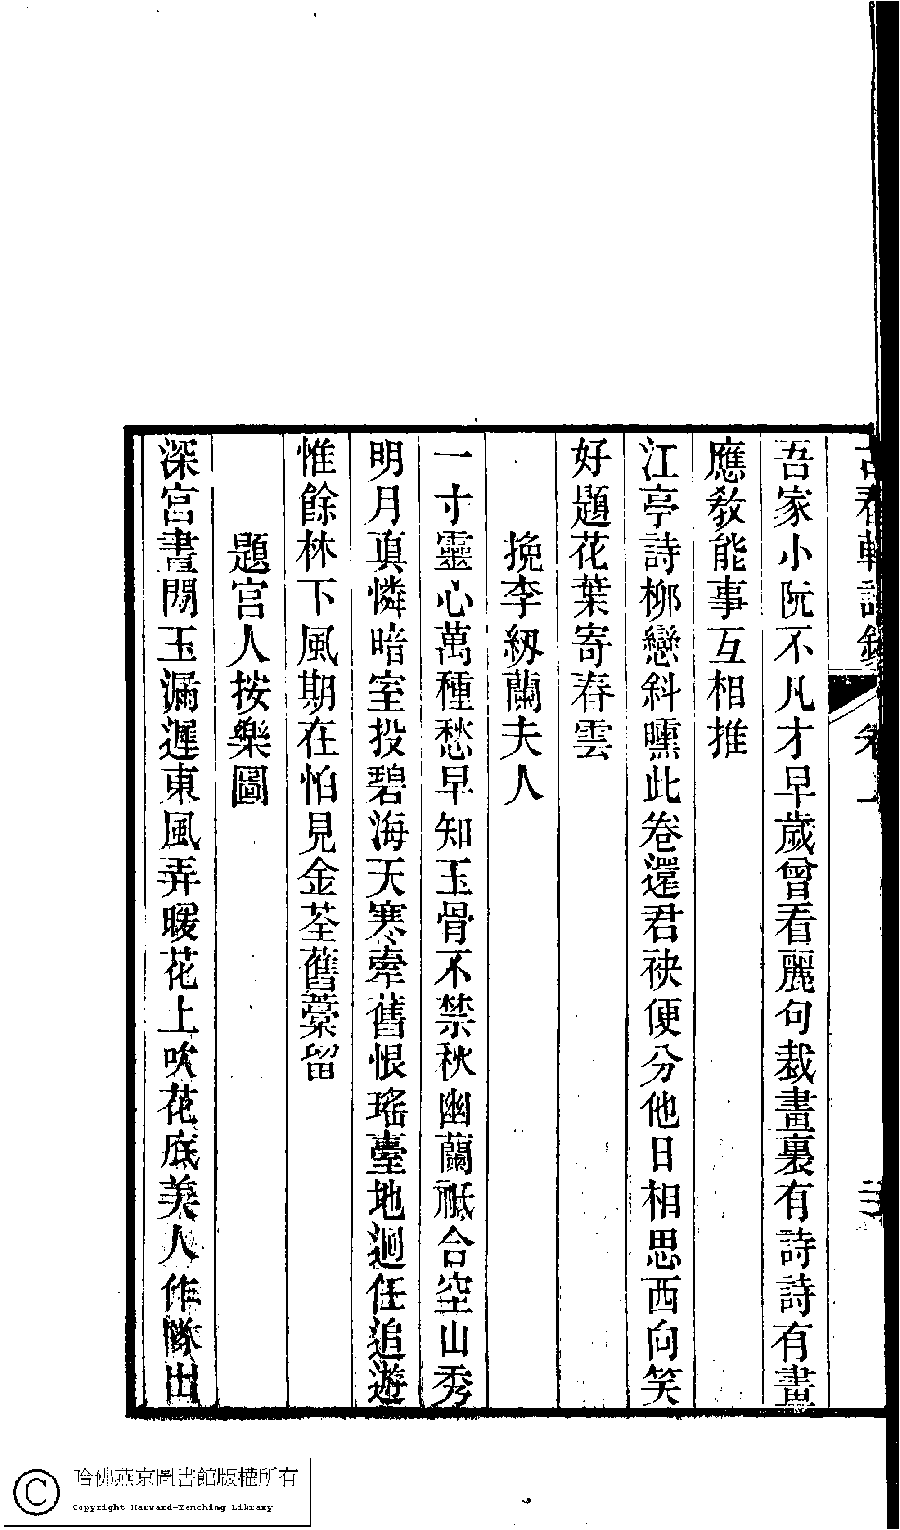 古春軒詩鈔 卷上
吾家小阮不凡才早歲曾看麗句裁畫裏有詩詩有畫
應教能事互相推
江亭詩柳戀斜曛此卷還君袂便分他日相思西向笑
好題花葉寄春雲
挽李紉蘭夫人
一寸靈心萬種愁早知玉骨不禁秋幽蘭祗合空山秀
明月眞憐暗室投碧海天寒牽舊恨瑤臺地迥任追遊
惟餘林下風期在怕見金荃舊藁留
題宮人按樂圖
深宮晝閒玉漏遲東風弄暖花上吹花底美人作隊出
哈佛燕京圖書館版權所有
Copyright Harvard-Yenching Library